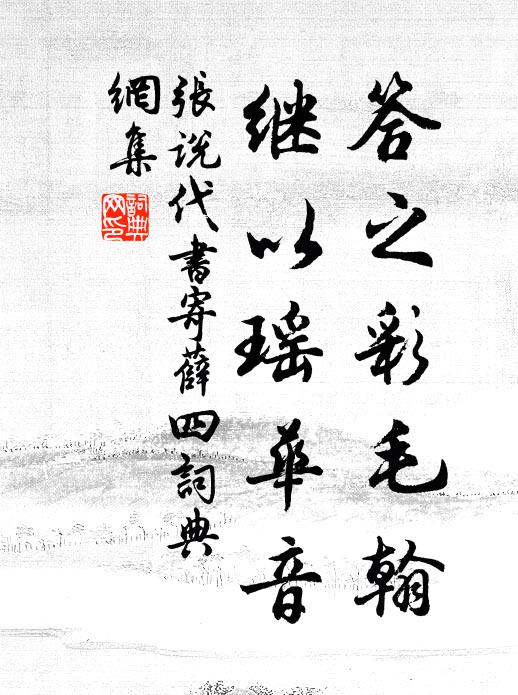 答之彩毛翰
继以瑶华音
張说代書寄薛四詞典
網集
詞典
网印